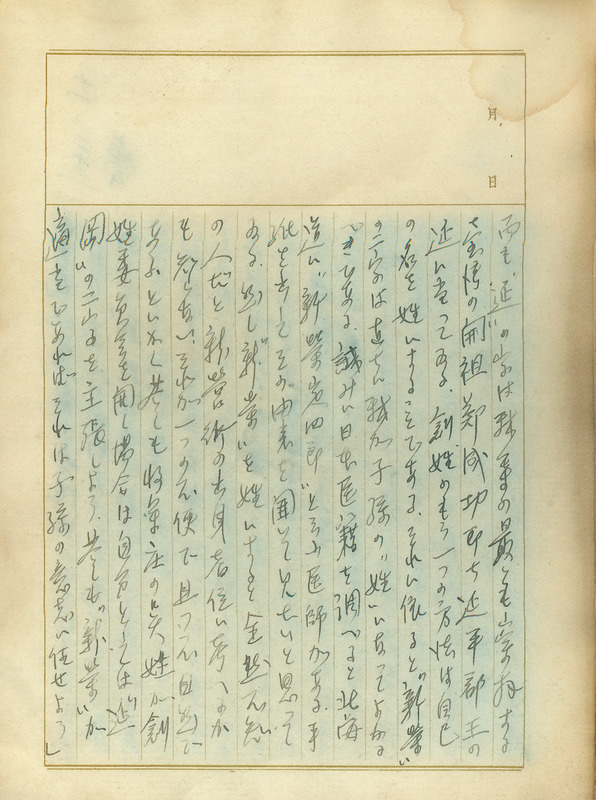 月 日
而も"延"の字は我輩の最とも崇拝する
台湾の開祖鄭成功即ち延平郡王の
延に当ってゐる。創姓のもう一つの方法は自己
の名を姓にすることである。それに依ると"新榮"
の二字は直ちに我が子孫の"姓"になってよかる
べきである。試みに日本医籍を調べると北海
道に"新榮"と云ふ医師がある。手
紙を出してその由来を聞いて見たいと思って
ゐる。然し"新榮"を姓にすると全然不知
の人だと新營街の出身者位に考へるか
も知らない。それが一つの不便で且つ不自然で
あるといかん。若しも将来庄の呉姓が創
姓委員会を開く場合は自分としては"延"
"岡"の二字を主張しよう。若しも"新榮"が
適当であればそれは子孫の意志に任せよう」